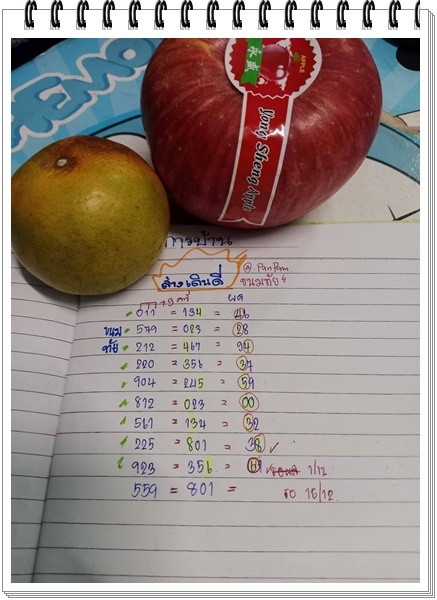 APPLE
Yong Sheng Apple
การบ้าน
ล่างเดินดี
@ PanPam
ขนมทัย
ผล
011 = 134 = 46
ขนม 579 = 023 = 28
ทัย 212 = 467 = 94
220 = 356 = 37
904 = 245 = 59
812 = 023 = 00
561 = 134 = 32
225 = 801 = 38 ✓
923 = 356 = 1/12
559 = 801 = รอ 16/12